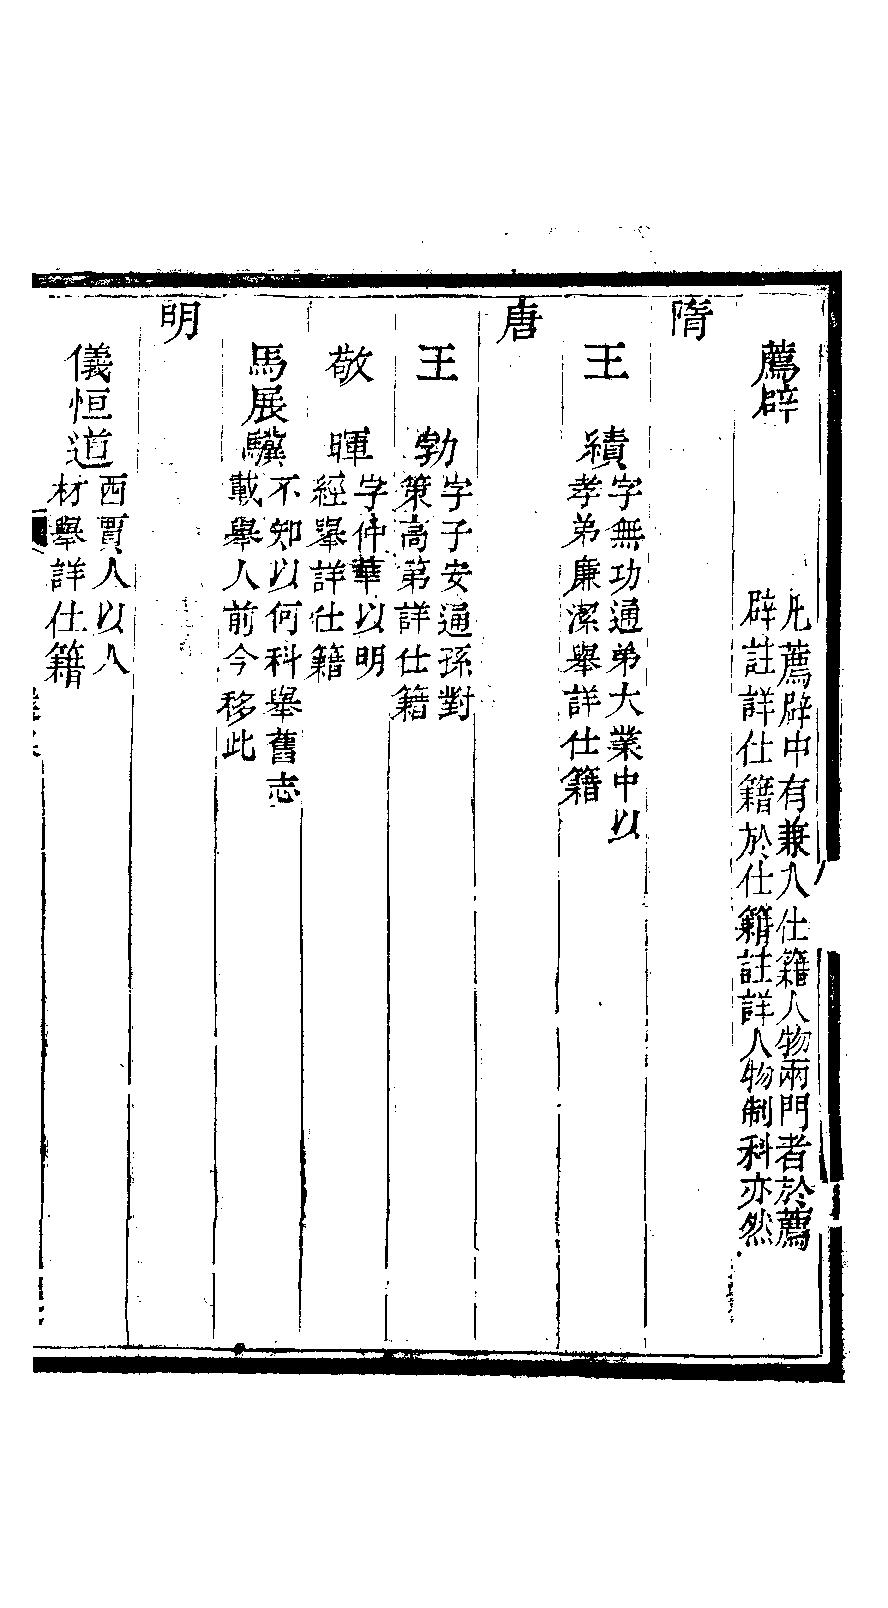 薦辟
凡薦辟中有兼入仕籍人物兩門者於薦
辟註詳仕籍於仕籍註詳人物制科亦然
隋
王績
字無功通弟大業中以
孝弟廉潔舉詳仕籍
唐
王勃
字子安通孫對
策高第詳仕籍
敬暉
字仲華以明
經舉詳仕籍
馬展驥
不知以何科舉舊志
載舉人前今移此
明
儀恒道
西賈人以人
材舉詳仕籍